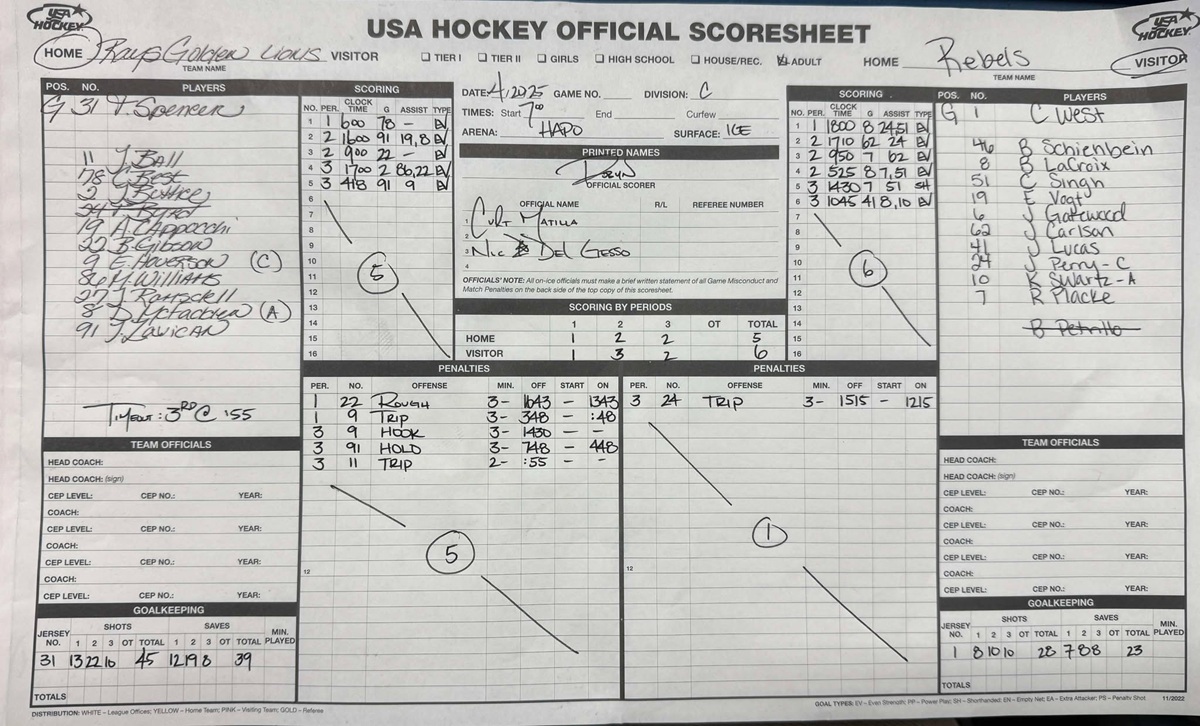 USA HOCKEY
USA HOCKEY OFFICIAL SCORESHEET
USA HOCKEY
HOME Rays Golden Lions VISITOR
TEAM NAME
TIER I TIER II GIRLS HIGH SCHOOL HOUSE/REC. ADULT
HOME Rebels VISITOR
TEAM NAME
POS. NO. PLAYERS
G 31 T. Spencer
11 J. Ball
78 G. Best
2 J. Buttice
19 A. CApporchi
22 B. Gibson
9 E. Hoverson (C)
86 M. Williams
27 J. Ramsdell
8 D. McFadden (A)
91 J. Lavican
Timeout: 3RD @ :55
SCORING
NO. PER. CLOCK TIME G ASSIST TYPE
1 1 600 78 - EV
2 2 1600 91 19,8 EV
3 2 900 22 - EV
4 3 1700 2 86,22 EV
5 3 418 91 9 EV
6
7
8
9
10
11
12
13
14
15
16
5
DATE: 4/2025 GAME NO. DIVISION: C
TIMES: Start 7:00 End Curfew
ARENA: HAPO SURFACE: ICE
PRINTED NAMES
OFFICIAL SCORER
OFFICIAL NAME R/L REFEREE NUMBER
1 Curt Matilla
2
3 Nic Del Gesso
4
OFFICIALS' NOTE: All on-ice officials must make a brief written statement of all Game Misconduct and
Match Penalties on the back side of the top copy of this scoresheet.
SCORING BY PERIODS
1 2 3 OT TOTAL
HOME 1 2 2 5
VISITOR 1 3 2 6
SCORING
NO. PER. CLOCK TIME G ASSIST TYPE
1 1 1800 8 24,51 EV
2 2 1710 62 24 EV
3 2 950 7 62 EV
4 2 525 8 7,51 EV
5 3 1430 7 51 SH
6 3 1045 41 8,10 EV
7
8
9
10
11
12
13
14
15
16
6
POS. NO. PLAYERS
G 1 C West
46 B Schienbein
8 B LaCroix
51 C Singh
19 E Vogt
6 J Gatewood
62 J Carlson
41 J Lucas
24 J Perry - C
10 K Swartz - A
7 R Placke
B Petrillo
PENALTIES
PER. NO. OFFENSE MIN. OFF START ON
1 22 Rough 3- 1643 - 1343
1 9 Trip 3- 348 - :48
3 9 HOOK 3- 1430 - -
3 91 HOLD 3- 748 - 448
3 11 TRIP 2- :55 - -
12
5
PENALTIES
PER. NO. OFFENSE MIN. OFF START ON
3 24 TRIP 3- 1515 - 1215
12
1
TEAM OFFICIALS
HEAD COACH:
HEAD COACH: (sign)
CEP LEVEL: CEP NO.: YEAR:
COACH:
CEP LEVEL: CEP NO.: YEAR:
COACH:
CEP LEVEL: CEP NO.: YEAR:
COACH:
CEP LEVEL: CEP NO.: YEAR:
GOALKEEPING
SHOTS SAVES
JERSEY NO. 1 2 3 OT TOTAL 1 2 3 OT TOTAL MIN. PLAYED
31 13 22 10 45 12 19 8 39
TOTALS
TEAM OFFICIALS
HEAD COACH:
HEAD COACH: (sign)
CEP LEVEL: CEP NO.: YEAR:
COACH:
CEP LEVEL: CEP NO.: YEAR:
COACH:
CEP LEVEL: CEP NO.: YEAR:
COACH:
CEP LEVEL: CEP NO.: YEAR:
GOALKEEPING
SHOTS SAVES
JERSEY NO. 1 2 3 OT TOTAL 1 2 3 OT TOTAL MIN. PLAYED
1 8 10 10 28 7 8 8 23
TOTALS
DISTRIBUTION: WHITE – League Offices; YELLOW – Home Team; PINK – Visiting Team; GOLD – Referee
GOAL TYPES: EV – Even Strength; PP – Power Play; SH – Shorthanded; EN – Empty Net; EA – Extra Attacker; PS – Penalty Shot 11/2022